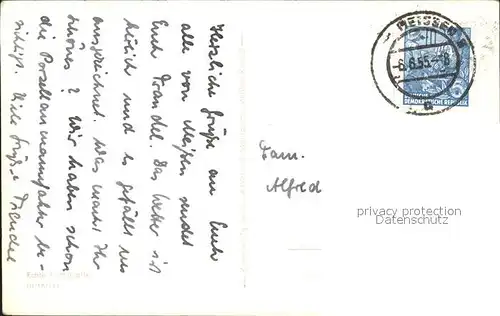 Herzliche Grüße an Euch
alle von Meißen sendet
Euch Trandel. Das Wetter ist
herrlich und es gefällt uns
ausgezeichnet. Was macht Ihr
schönes? Wir haben schon
die Porzellanmanufaktur be-
sichtigt. Viele Grüße
Fam.
Alfred
MEISSEN
-6.6.55.-8
DEMOKRATISCHE REPUBLIK
privacy protection
Datenschutz